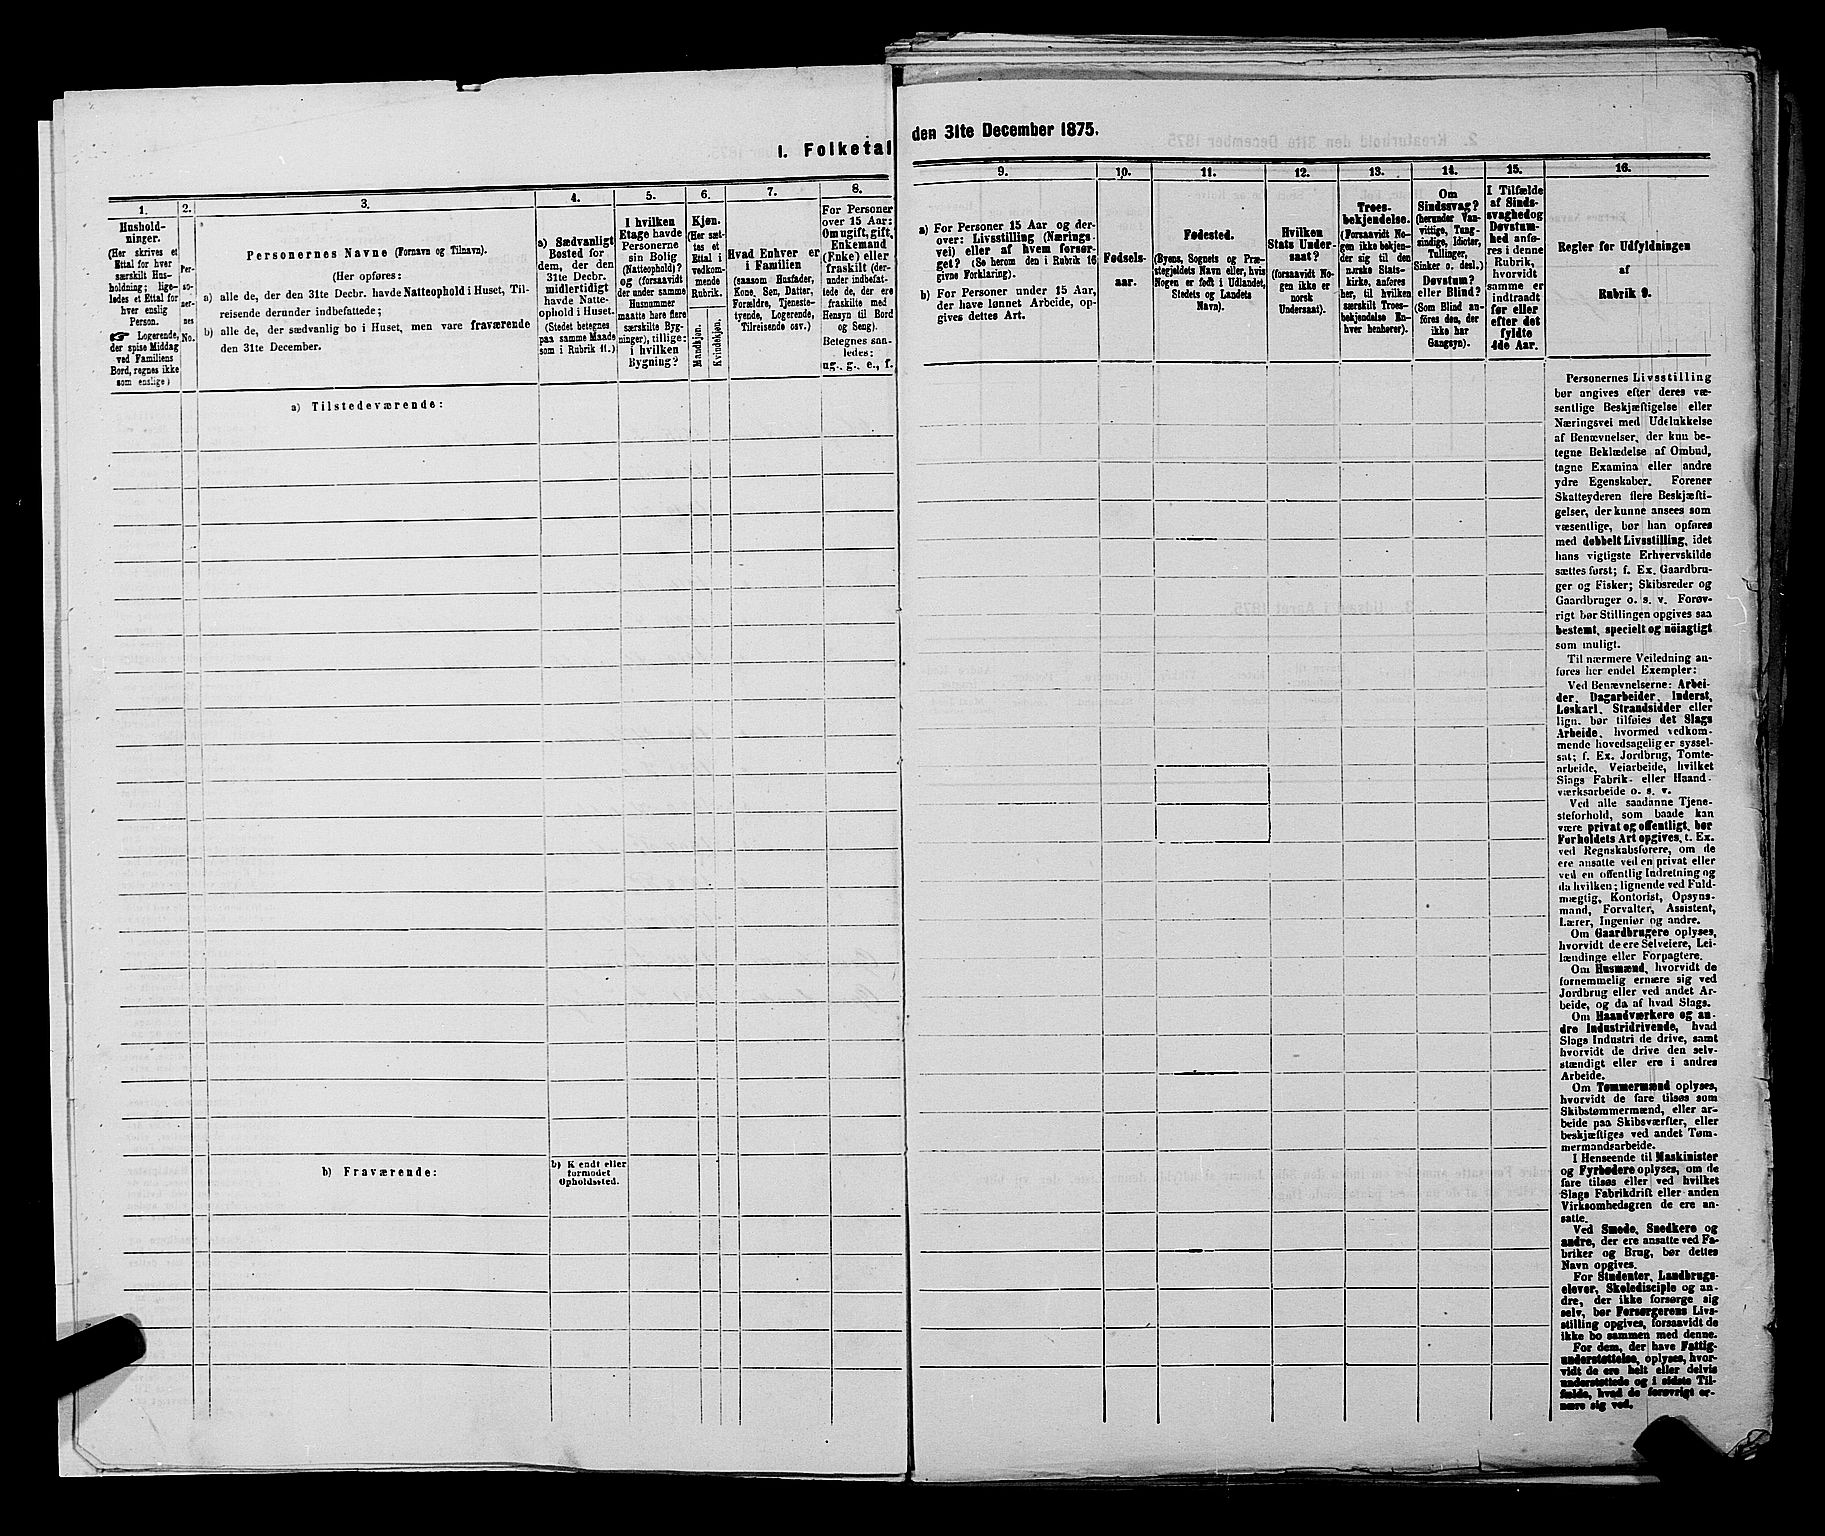 1. Folketal
den 31te December 1875.
1.
Hushold-
ninger.
(Her skrives et
Ettal for hver
særskilt Hus-
holdning; lige-
ledes et Ettal for
hver enslig
Person.
☞ Logerende,
der spise Middag
ved Familiens
Bord, regnes ikke
som enslige)
2.
Per-
so-
ner-
nes
No.
3.
Personernes Navne (Fornavn og Tilnavn).
(Her opføres:
a) alle de, der den 31te Decbr. havde Natteophold i Huset, Til-
reisende derunder indbefattede;
b) alle de, der sædvanlig bo i Huset, men vare fraværende
den 31te December.
4.
a) Sædvanligt
Bosted for
dem, der den
31te Decbr.
midlertidigt
havde Natte-
ophold i Huset.
(Stedet betegnes
paa samme Maade
som i Rubrik 11.)
5.
I hvilken
Etage havde
Personerne
sin Bolig
(Natteophold)?
og (forsaavidt
der under samme
Husnummer
maatte høre flere
særskilte Byg-
ninger), tillige:
i hvilken
Bygning?
6.
Kjøn.
(Her sæt-
tes et
Ettal i
vedkom-
mende
Rubrik.
Mandkjøn.
Kvindekjøn.
7.
Hvad Enhver er
i Familien
(saasom Husfader,
Kone, Søn, Datter,
Forældre, Tjeneste-
tyende, Logerende,
Tilreisende osv.)
8.
For Personer
over 15 Aar:
Om ugift, gift,
Enkemand
(Enke) eller
fraskilt (der-
under indbefat-
tede de, der ere
fraskilte med
Hensyn til Bord
og Seng).
Betegnes saa-
ledes:
ug., g., e., f.
a) Tilstedeværende:
b) Fraværende:
b) Kjendt eller
formodet
Opholdssted.
9.
a) For Personer 15 Aar og der-
over: Livsstilling (Nærings-
vei) eller af hvem forsør-
get? (Se herom den i Rubrik 16
givne Forklaring).
b) For Personer under 15 Aar,
der have lønnet Arbeide, op-
gives dettes Art.
10.
Fødsels-
aar.
11.
Fødested.
(Byens, Sognets og Præ-
stegjeldets Navn eller, hvis
Nogen er født i Udlandet,
Stedets og Landets
Navn).
12.
Hvilken
Stats Under-
saat?
(forsaavidt No-
gen ikke er
norsk
Undersaat).
13.
Troes-
bekjendelse.
(Forsaavidt No-
gen ikke bekjen-
der sig til den
norske Stats-
kirke, anføres
her, til hvilken
særskilt Troes-
bekjendelse En-
hver henhører).
14.
Om
Sindssvag?
(herunder Van-
vittige, Tung-
sindige, Idioter,
Tullinger,
Sinker o. desl.)
Døvstum?
eller Blind?
(Som Blind an-
føres den, der
ikke har
Gangsyn).
15.
I Tilfælde
af Sinds-
svaghed og
Døvstum-
hed anfø-
res i denne
Rubrik,
hvorvidt
samme er
indtraadt
før eller
efter det
fyldte
4de Aar.
16.
Regler for Udfyldningen
af
Rubrik 9.
Personernes Livsstilling
bør angives efter deres væ-
sentlige Beskjæftigelse eller
Næringsvei med Udelukkelse
af Benævnelser, der kun be-
tegne Beklædelse af Ombud,
tagne Examina eller andre
ydre Egenskaber. Forener
Skatteyderen flere Beskjæfti-
gelser, der kunne ansees som
væsentlige, bør han opføres
med dobbelt Livsstilling, idet
hans vigtigste Erhvervskilde
sættes først; f. Ex. Gaardbru-
ger og Fisker; Skibsreder og
Gaardbruger o. s. v. Forøv-
rigt bør Stillingen opgives saa
bestemt, specielt og nøiagtigt
som muligt.
Til nærmere Veiledning an-
føres her endel Exempler:
Ved Benævnelserne: Arbei-
der, Dagarbeider, Inderst,
Løskarl, Strandsidder eller
lign. bør tilføies det Slags
Arbeide, hvormed vedkom-
mende hovedsagelig er syssel-
sat; f. Ex. Jordbrug, Tomte-
arbeide, Veiarbeide, hvilket
Slags Fabrik- eller Haand-
værksarbeide o. s. v.
Ved alle saadanne Tjene-
steforhold, som baade kan
være privat og offentligt, bør
Forholdets Art opgives, t. Ex.
ved Regnskabsførere, om de
ere ansatte ved en privat eller
ved en offentlig Indretning og
da hvilken; lignende ved Fuld-
mægtig, Kontorist, Opsyns-
mand, Forvalter, Assistent,
Lærer, Ingeniør og andre.
Om Gaardbrugere oplyses,
hvorvidt de ere Selveiere, Lei-
lændinge eller Forpagtere.
Om Husmænd, hvorvidt de
fornemmelig ernære sig ved
Jordbrug eller ved andet Ar-
beide, og da af hvad Slags.
Om Haandværkere og an-
dre Industridrivende, hvad
Slags Industri de drive, samt
hvorvidt de drive den selv-
stændigt eller ere i andres
Arbeide.
Om Tømmermænd oplyses,
hvorvidt de fare tilsøs som
Skibstømmermænd, eller ar-
beide paa Skibsværfter, eller
beskjæftiges ved andet Tøm-
mermandsarbeide.
I Henseende til Maskinister
og Fyrbødere oplyses, om de
fare tilsøs eller ved hvilket
Slags Fabrikdrift eller anden
Virksomhedsgren de ere an-
satte.
Ved Smede, Snedkere og
andre, der ere ansatte ved Fa-
briker og Brug, bør dettes
Navn opgives.
For Studenter, Landbrugs-
elever, Skoledisciple og an-
dre, der ikke forsørge sig
selv, bør Forsørgerens Livs-
stilling opgives, forsaavidt de
ikke bo sammen med denne.
For dem, der have Fattig-
understøttelse, oplyses, hvor-
vidt de ere helt eller delvis
understøttede og i sidste Til-
fælde, hvad de forøvrigt er-
nære sig ved.